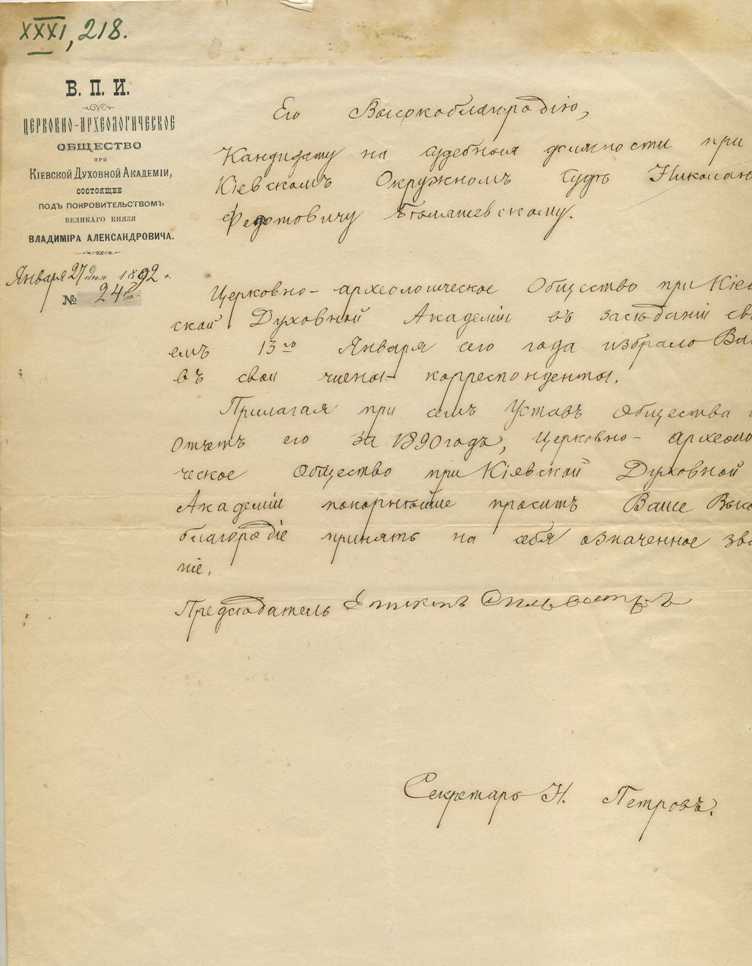 XXXI, 218.
В. П. И.
ЦЕРКОВНО-АРХЕОЛОГИЧЕСКОЕ
ОБЩЕСТВО
ПРИ
КІЕВСКОЙ ДУХОВНОЙ АКАДЕМІИ,
СОСТОЯЩЕЕ
ПОДЪ ПОКРОВИТЕЛЬСТВОМЪ
ВЕЛИКАГО КНЯЗЯ
ВЛАДИМІРА АЛЕКСАНДРОВИЧА.
Января 27 дня 1892 г.
№ 24
Его Высокоблагородію,
Кандидату на судебныя должности при
Кіевскомъ Окружномъ Судѣ Никола
Федотовичу Бѣляшевскому.
Церковно-археологическое Общество при Кіев
ской Духовной Академіи въ засѣданіи сво
емъ 13го Января сего года избрало Ва
въ свои члены-корреспонденты.
Прилагая при семъ Уставъ Общества и
Отчетъ его за 1890 годъ, Церковно-археоло
ческое Общество при Кіевской Духовной
Академіи покорнѣйше проситъ Ваше Высо
благородіе принять на себя означенное зва
ніе.
Предсѣдатель Епископъ Сильвестръ
Секретарь Н. Петровъ.